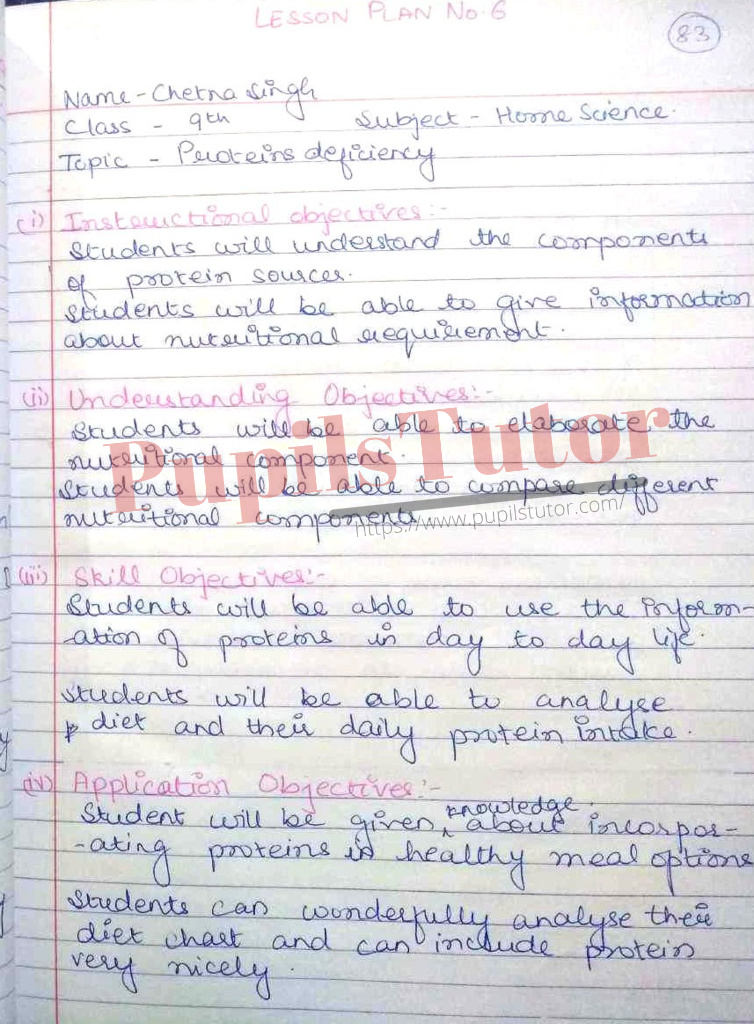 LESSON PLAN No. 6
83
Name - Chetna Singh
Class - 9th Subject - Home Science.
Topic - Proteins deficiency
(i) Instructional objectives:-
Students will understand the components
of protein sources.
Students will be able to give information
about nutritional requirement.
(ii) Understanding Objectives:-
Students will be able to elaborate the
nutritional component.
Students will be able to compare different
nutritional components
PupilsTutor
https://www.pupilstutor.com/
(iii) Skill Objectives:-
Students will be able to use the inform-
-ation of proteins in day to day life.
Students will be able to analyse
diet and their daily protein intake.
(iv) Application Objectives:-
Student will be given knowledge about incorpor-
-ating proteins in healthy meal options
Students can wonderfully analyse their
diet chart and can include protein
very nicely.